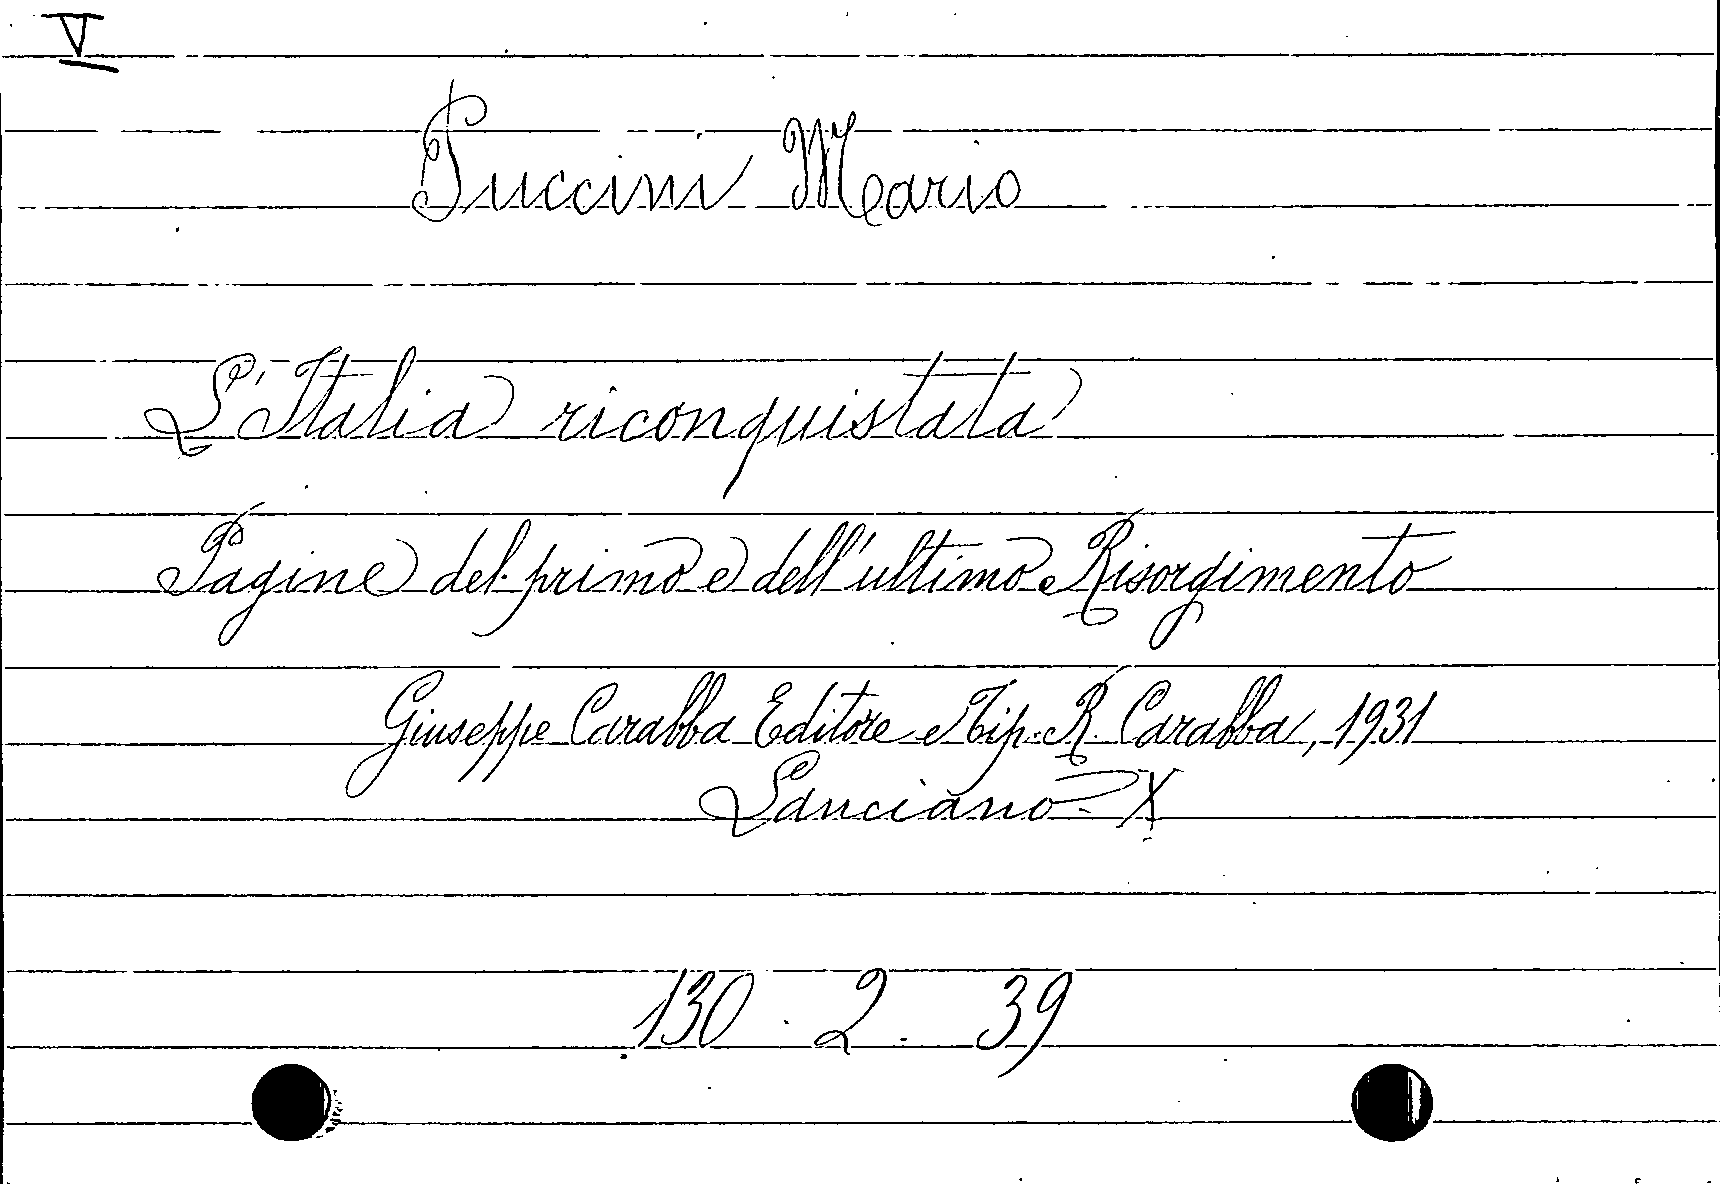 V
Puccini Mario
L'Italia riconquistata
Pagine del primo e dell'ultimo Risorgimento
Giuseppe Carabba Editore e Tip. R. Carabba, 1931
Lanciano - X
130 . 2 . 39